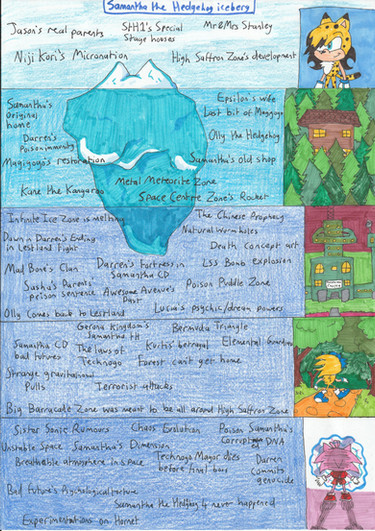 Samantha the Hedgehog iceberg
Jason's real parents
StH1's Special Stage houses
Mr & Mrs Stanley
Niji Kori's Micronation
High Saffros Zone's development
Samantha's original home
Epsilon's wife
Last bit of Maggygo
Darren's Poison immunity
Olly the Hedgehog
Magigoyo's restoration
Samantha's old shop
Kane the Kangaroo
Metal Meteorite Zone
Space Centre Zone's Rocket
Infinite Ice Zone is melting
The Chinese Prophecy
Natural Wormholes
Dawn in Darren's Ending in Lestland fight
Death Concept art
Mad Bone's Clan
Darren's Fortress in Samantha CD
LSS Bomb explosion
Sasha's Parents' prison sentence
Awesome Avenue's Past
Poison Puddle Zone
Olly comes back to Lestland
Lucia's psychic/dream powers
Gerona Kingdom's Samantha TH
Bermuda Triangle
Samantha CD bad futures
The laws of Technogo
Koriti's betrayal
Elemental Guardians
Forest can't get home
Strange gravitational Pulls
Terrorist attacks
Big Barracade Zone was meant to be all around High Saffros Zone
Sister Sonic Rumours
Chaos Evolution
Poison Samantha's Corruption DNA
Unstable Space
Samantha's Dimension
Breathable atmosphere in space
Technogo Mayor dies before final boss
Darren commits genocide
Bad future's
Samantha the Hedgehog 4 never happened
Experimentations on Hornet